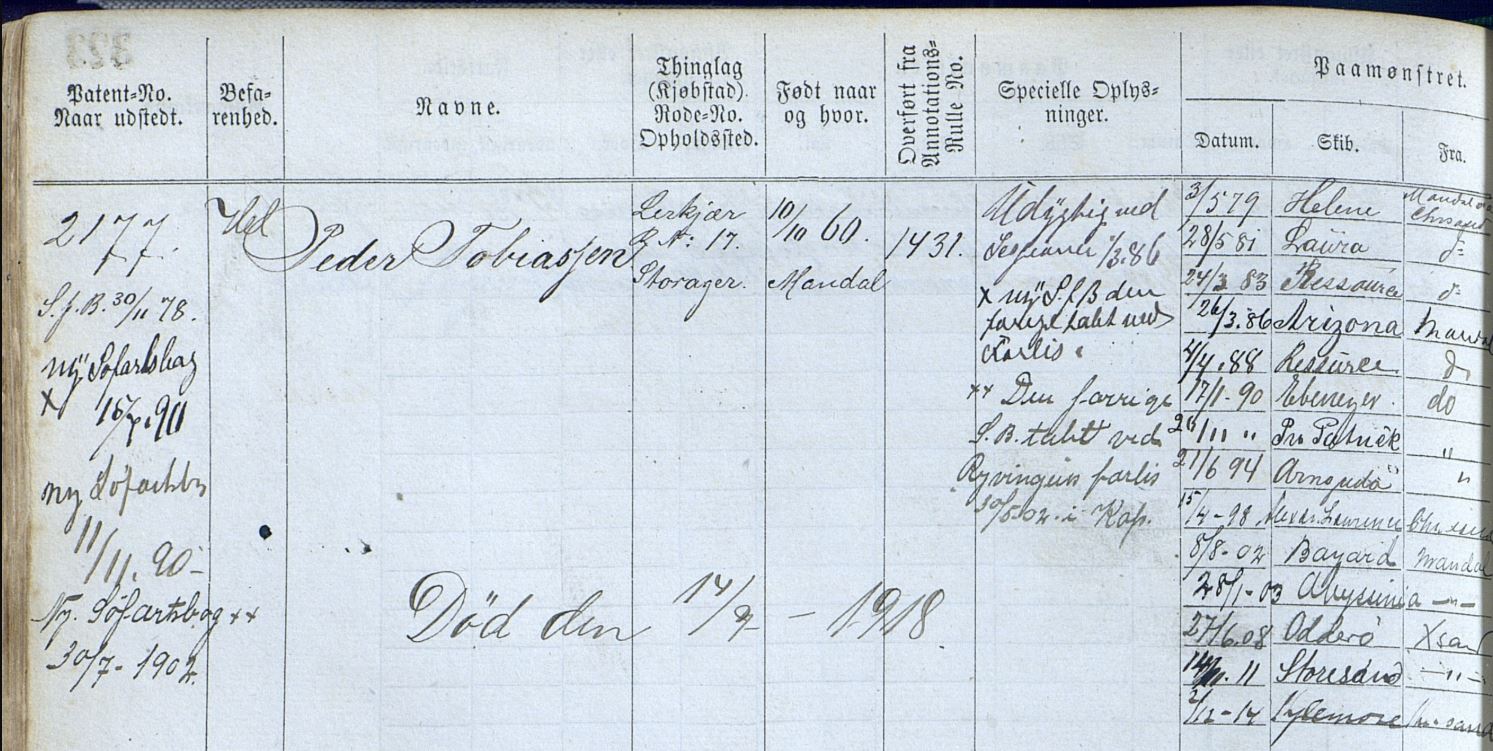 323
Patent=No.
Naar udstedt.
Befa=
renhed.
Navne.
Thinglag
(Kjøbstad).
Rode=No.
Opholdssted.
Født naar
og hvor.
Overført fra
Annotations=
Rulle No.
Specielle Oplys=
ninger.
Paamønstret.
Datum.
Skib.
Fra.
2177.
S.f.B. 30/11 78.
ny Søfartsbog
X
90
ny
11/11. 90-
Ny. Söfartsbog ××
30/7- 1902.
Peder Tobiassen
Lerkjær
R. No: 17.
Storager.
10/10 60.
Mandal
1431.
Udygtig ved
/3.86
× ny S.f.B den
forige tabt ved
Forlis.
×× Den forrige
S.B. tabt ved
Ryvingens forlis
30/5-02. i Kap.
Død den 14/2 - 1918
3/5 79 Helene Mandal
28/5 81 Laura do
24/3 83 Ressource do
26/3.86 Arizona Mandal
4/4.88 Ressource do
17/1-90 Ebenezer. do
26/11 " "
21/6 94 "
15/4-98 Alexdr. Lawrence
8/8-02 Bayard Mandal
28/1-03 Abysinia -"-
27/6.08 Odderö Xsand
11 Storesand -"-
2/12-14 Kylemore